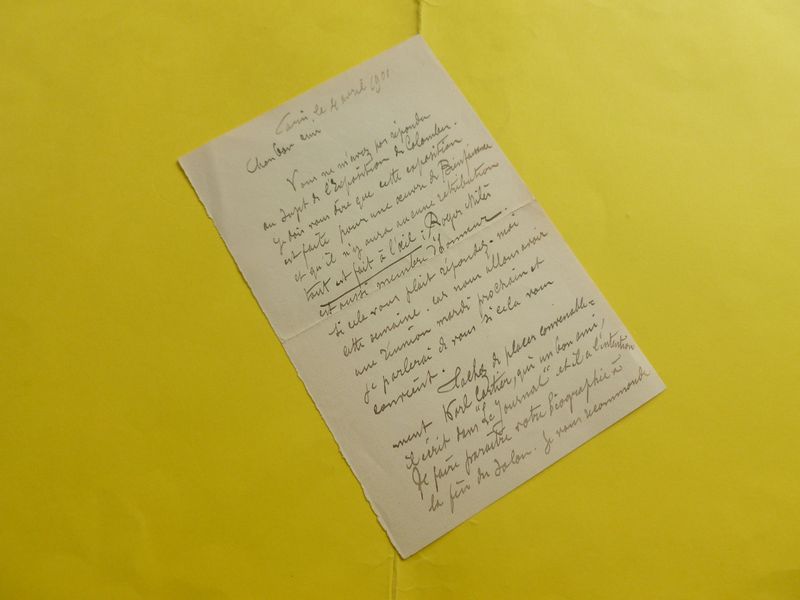 Paris, le 4 avril 1901
Cher bon ami
Vous ne m'avez pas répondu
au sujet de l'Exposition de Colombes.
Je dois vous dire que cette exposition
est faite pour une œuvre de Bienfaisance
et qu'il n'y aura aucune rétribution
tout est fait à l'œil. Roger Milès
est aussi membre d'honneur.
Si cela vous plait répondez-moi
cette semaine. car nous allons avoir
une réunion mardi prochain et
je parlerai de vous si cela vous
convient. Tachez de placer convenable=
ment Karl Cartier, qui un bon ami,
il écrit dans "Le Journal" et il a l'intention
de faire paraître votre biographie à
la fin du Salon. Je vous recommande